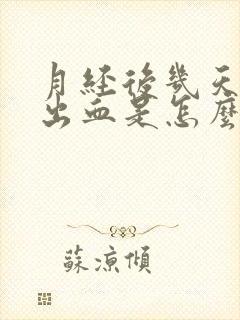 月经後幾天
出血是怎麼
蘇涼傾